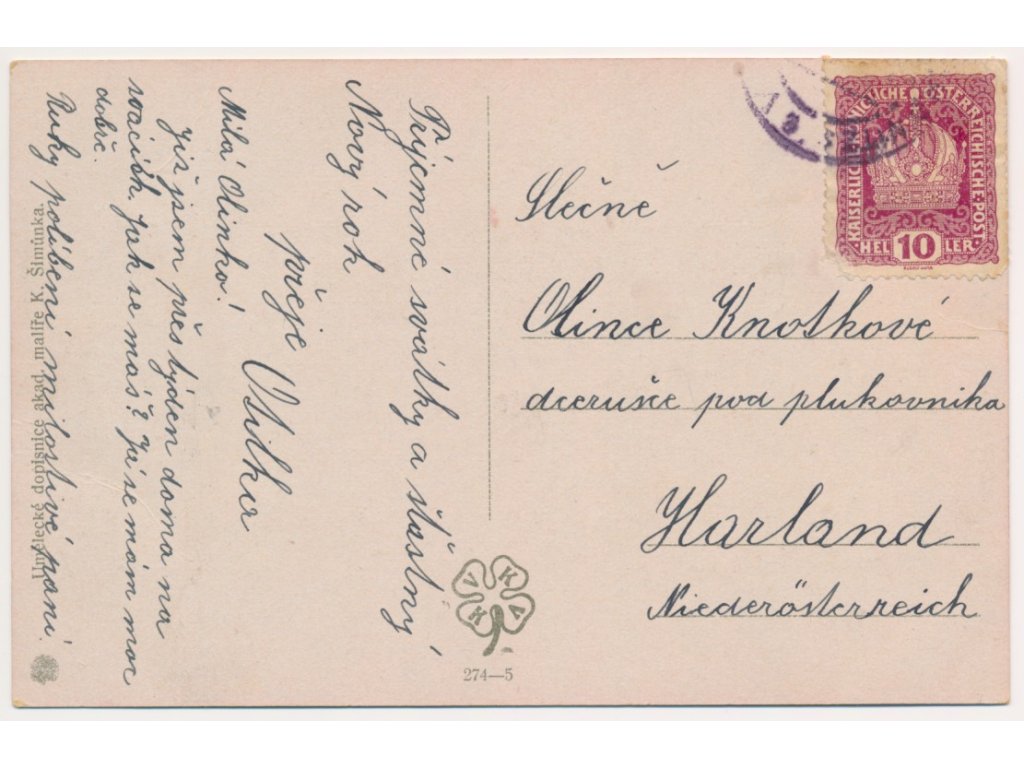 Příjemné svátky a šťastný
Nový rok
přeje Otilka
Milá Olinko!
Již jsem přes týden doma na
svacích. Jak se máš? Já se mám moc
dobř.
Ruky políbení milostivé paní.
Umělecké dopisnice akad. malíře K. Šimůnka.
V K K V
274—5
KAISERLICHE KÖNIGLICHE ÖSTERREICHISCHE POST
HELLER
10
Slečně
Olince Knotkové
dcerušce pod plukovníka
Harland
Niederösterreich